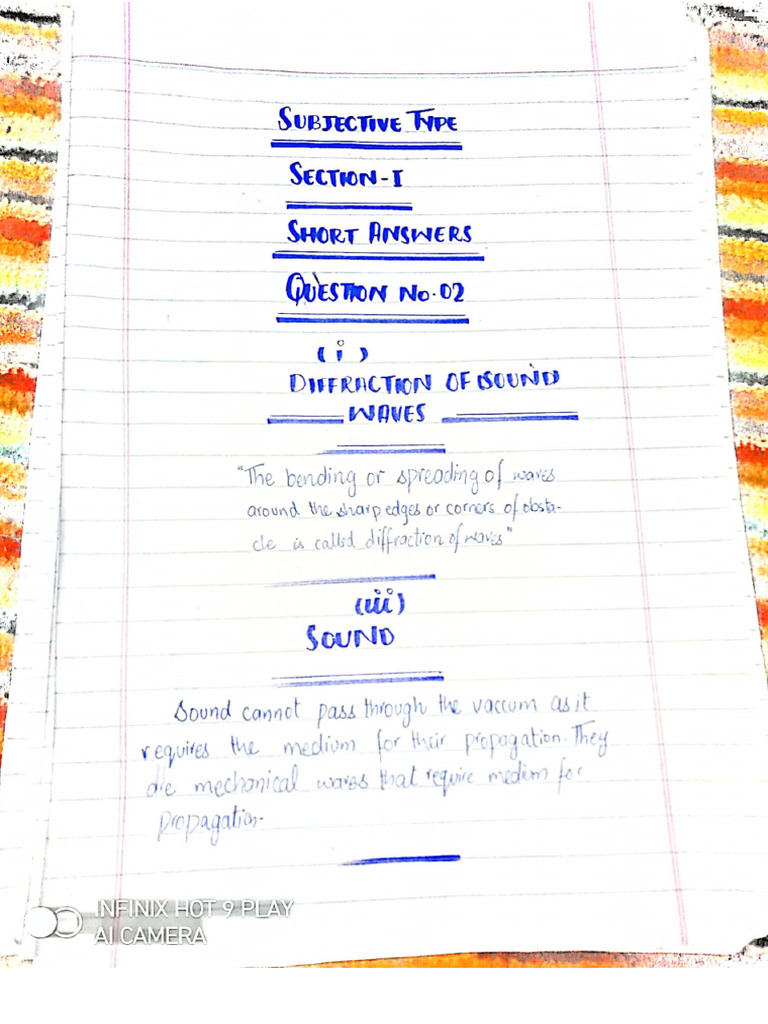 SUBJECTIVE TYPE
SECTION-I
SHORT ANSWERS
QUESTION No.02
(i)
DIFFRACTION OF SOUND
WAVES
"The bending or spreading of waves
around the sharp edges or corners of obsta-
cle is called diffraction of waves"
(iii)
SOUND
Sound cannot pass through the vaccum as it
requires the medium for their propagation. They
are mechanical waves that require medium for
propagation.
INFINIX HOT 9 PLAY
AI CAMERA